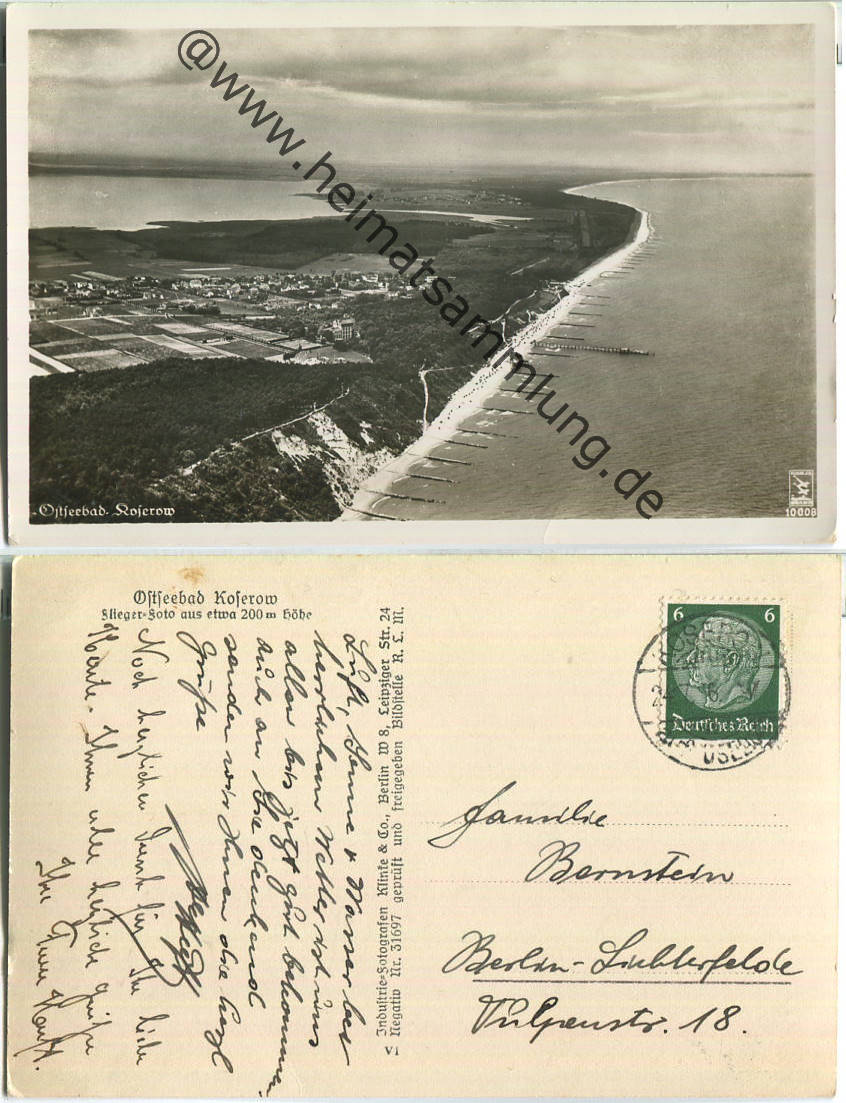 @www.heimatsammlung.de
Ostseebad Koserow
10008
Ostseebad Koserow
Flieger-Foto aus etwa 200 m Höhe
Industrie-Fotografen Klinke & Co., Berlin W 8, Leipziger Str. 24
Negativ Nr. 31697 geprüft und freigegeben Bildstelle R. L. M.
VI
6 6
Deutsches Reich
Luft, Sonne u Wasser bei
herrlichem Wetter ist uns
allen bis jetzt gut bekommen.
auch an Sie denkend
senden wir Ihnen die herzl
Grüße
Noch herzlichen Dank für Ihre liebe
Karte. Ihnen alle herzliche Grüße
Ihre
Familie
Bernstein
Berlin-Lichterfelde
Tulpenstr. 18.